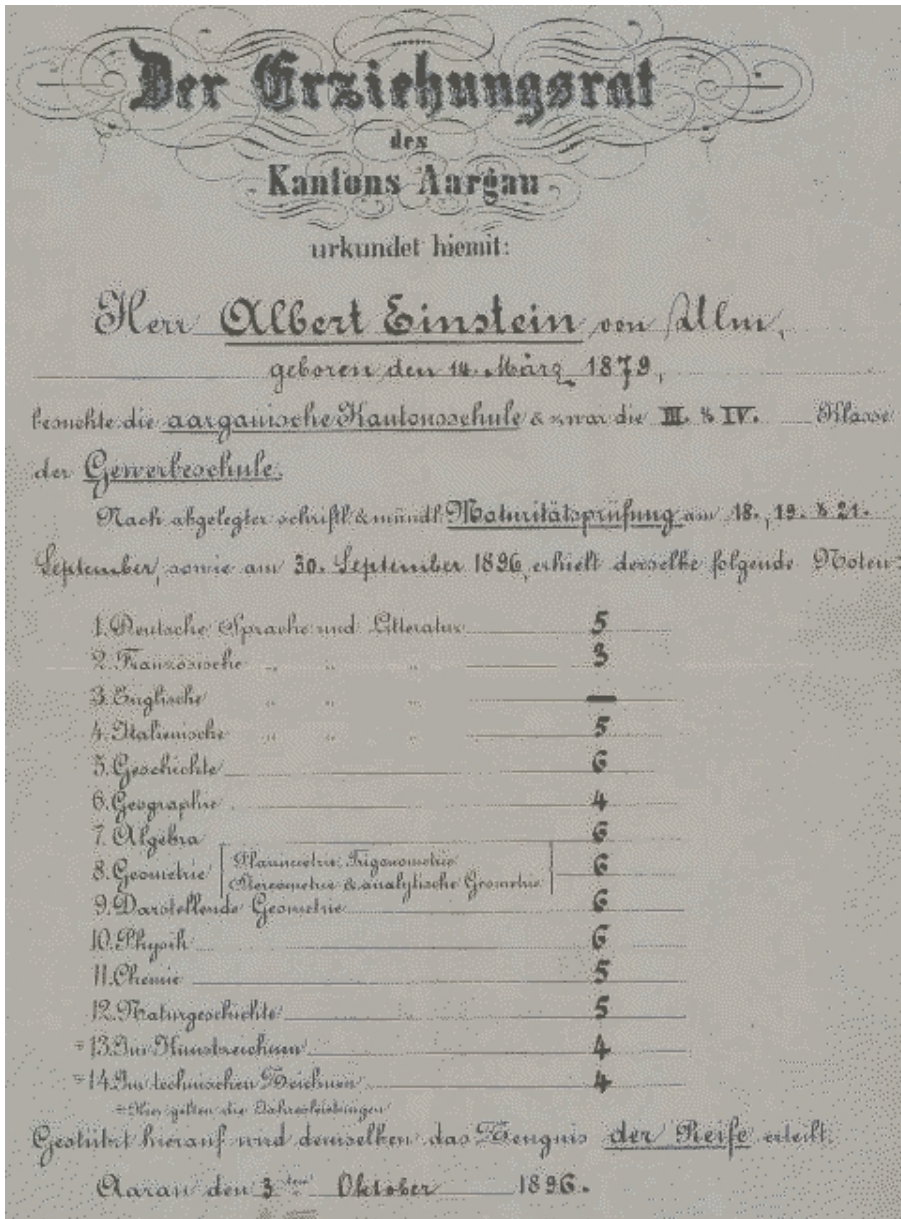 Der Erziehungsrat
des
Kantons Aargau
urkundet hiemit:
Herr Albert Einstein von Ulm,
geboren den 14. März 1879,
besuchte die aargauische Kantonsschule & zwar die III. & IV. Klasse
der Gewerbeschule.
Nach abgelegter schriftl. & mündl. Maturitätsprüfung am 18., 19. & 21.
September, sowie am 30. September 1896, erhielt derselbe folgende Noten:
1. Deutsche Sprache und Litteratur 5
2. Französische " " " 3
3. Englische " " " —
4. Italienische " " " 5
5. Geschichte 6
6. Geographie 4
7. Algebra 6
8. Geometrie [ Planimetrie, Trigonometrie
Stereometrie & analytische Geometrie ] 6
9. Darstellende Geometrie 6
10. Physik 6
11. Chemie 5
12. Naturgeschichte 5
=13. Im Kunstzeichnen 4
=14. Im technischen Zeichnen 4
= Hier gelten die Jahresleistungen
Gestützt hierauf wird demselben das Zeugnis der Reife erteilt.
Aarau den 3ten Oktober 1896.